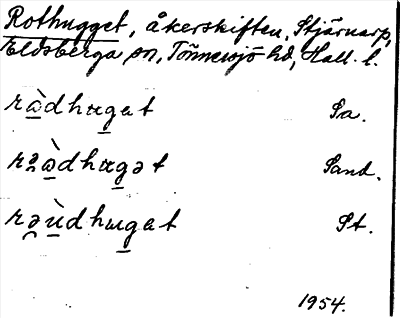 Rothugget, åkerskiften, Stjärnarp,
Eldsberga sn, Tönnersjö hd, Hall. l.
ràdhugat Sa.
Sand.
St.
1954.